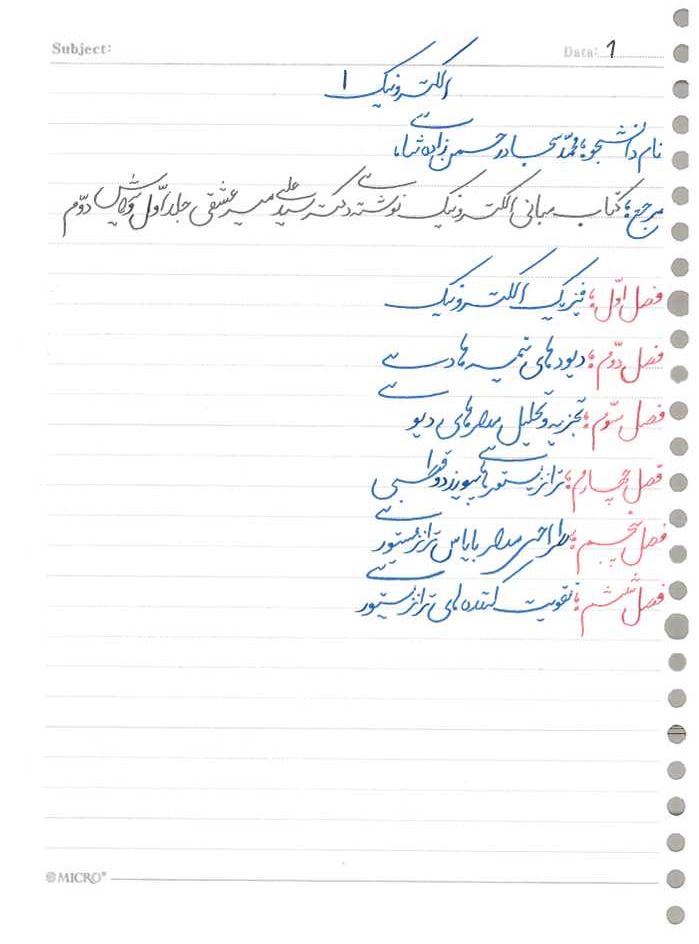 Subject:
Date: 1
الکترونیک ۱
نام دانشجو: محمّد سجاد حسن زاده
مرجع: کتاب مبانی الکترونیک نوشته دکتر سید علی میرعشقی جلد اوّل ویرایش دوّم
فصل اوّل: فیزیک الکترونیک
فصل دوّم: دیودهای نیمه هادی
فصل سوّم: تجزیه و تحلیل مدارهای دیودی
فصل چهارم: ترانزیستورهای پیوندی دوقطبی
فصل پنجم: طراحی مدار بایاس ترانزیستوری
فصل ششم: تقویت کننده های ترانزیستوری
MICRO®